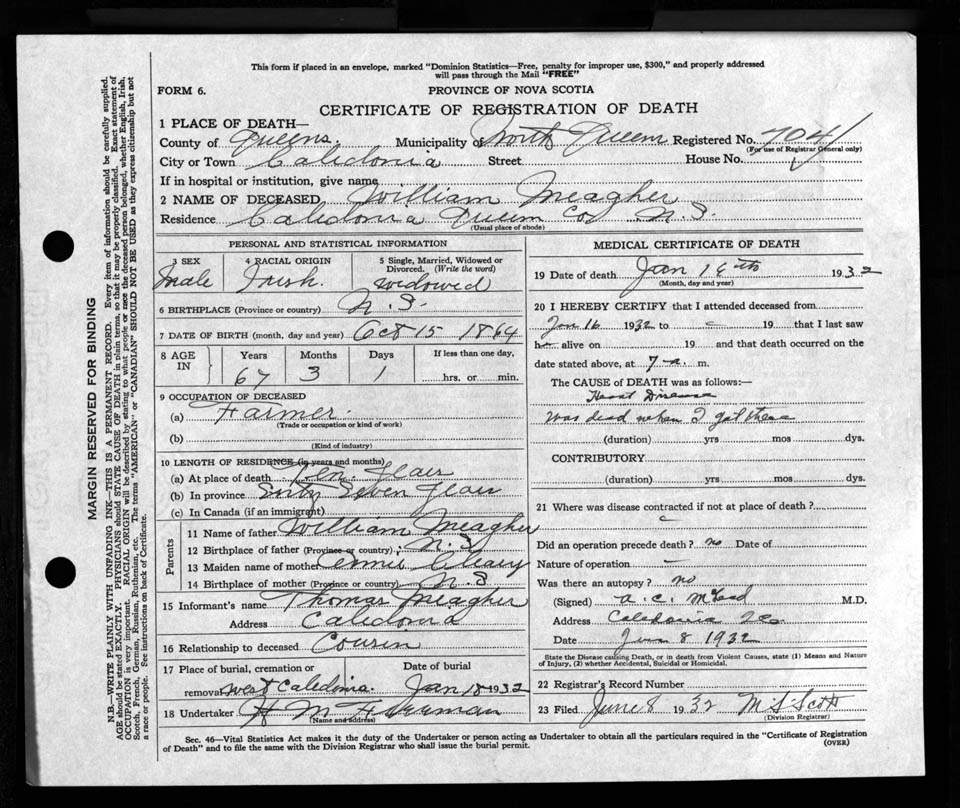 This form if placed in an envelope, marked "Dominion Statistics—Free, penalty for improper use, $300," and properly addressed
will pass through the Mail "FREE"
FORM 6.
PROVINCE OF NOVA SCOTIA
CERTIFICATE OF REGISTRATION OF DEATH
1 PLACE OF DEATH—
County of Queens. Municipality of North Queen Registered No. 704
(For use of Registrar General only)
City or Town Caledonia Street House No.
If in hospital or institution, give name
2 NAME OF DECEASED William Meagher
Residence Caledonia Queen Co N.S.
(Usual place of abode)
PERSONAL AND STATISTICAL INFORMATION
3 SEX 4 RACIAL ORIGIN 5 Single, Married, Widowed or Divorced. (Write the word)
Male Irish. Widowed
6 BIRTHPLACE (Province or country) N.S.
7 DATE OF BIRTH (month, day and year) Oct 15 1864
8 AGE IN Years Months Days If less than one day,
67 3 1 hrs. or min.
9 OCCUPATION OF DECEASED
(a) Farmer.
(Trade or occupation or kind of work)
(b)
(Kind of industry)
10 LENGTH OF RESIDENCE (in years and months)
(a) At place of death Ten Years
(b) In province Sixty Seven Years
(c) In Canada (if an immigrant)
Parents
11 Name of father William Meagher
12 Birthplace of father (Province or country) N.S
13 Maiden name of mother
14 Birthplace of mother (Province or country) N.S
15 Informant's name Thomas Meagher
Address Caledonia
16 Relationship to deceased Cousin
17 Place of burial, cremation or Date of burial
removal West Caledonia. Jan 18 1932
18 Undertaker H M
(Name and address)
MEDICAL CERTIFICATE OF DEATH
19 Date of death Jan 16th 1932
(Month, day and year)
20 I HEREBY CERTIFY that I attended deceased from
Jan 16 1932 to — 19 that I last saw
h alive on 19 and that death occurred on the
date stated above, at 7 a. m.
The CAUSE OF DEATH was as follows:—
Heart Disease
Was dead when I got there
(duration) yrs mos. dys.
CONTRIBUTORY
(duration) yrs. mos. dys.
21 Where was disease contracted if not at place of death?
Did an operation precede death? no Date of
Nature of operation —
Was there an autopsy? no
(Signed) A. C. McLeod M.D.
Address Caledonia
Date Jun 8 1932
State the Disease causing Death, or in death from Violent Causes, state (1) Means and Nature
of Injury, (2) whether Accidental, Suicidal or Homicidal.
22 Registrar's Record Number
23 Filed June 8 1932 M S Scott
(Division Registrar)
Sec. 46—Vital Statistics Act makes it the duty of the Undertaker or person acting as Undertaker to obtain all the particulars required in the "Certificate of Registration
of Death" and to file the same with the Division Registrar who shall issue the burial permit.
(OVER)
MARGIN RESERVED FOR BINDING
N.B.—WRITE PLAINLY WITH UNFADING INK—THIS IS A PERMANENT RECORD. Every item of information should be carefully supplied.
AGE should be stated EXACTLY. PHYSICIANS should STATE CAUSE OF DEATH in plain terms, so that it may be properly classified. Exact statement of
OCCUPATION is very important. RACIAL ORIGIN will be described by stating to what people or race the deceased person belonged, whether English, Irish,
Scotch, French, German, Russian, Ruthenian, etc. The terms "AMERICAN" or "CANADIAN" SHOULD NOT BE USED as they express citizenship but not
a race or people. See instructions on back of Certificate.